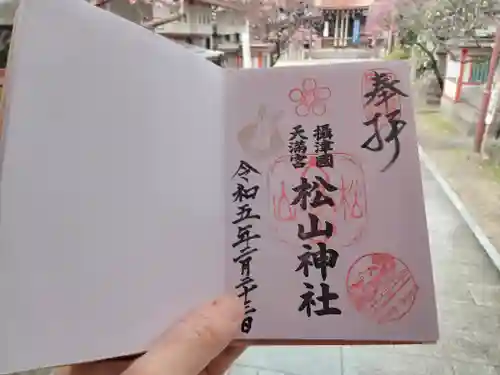 奉拝
攝津國
天満宮
松山神社
令和五年二月二十三日